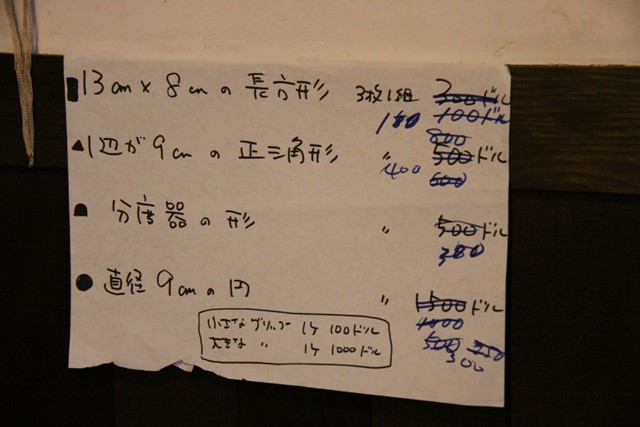 13cm×8cmの長方形 3枚1組 300ドル
100ドル
180
600
1辺が9cmの正三角形 〃 500ドル
400 600
分度器の形 〃 500ドル
380
直径9cmの円 〃 1500ドル
1000
500 350
300
小さな 1ケ 100ドル
大きな 〃 1ケ 1000ドル